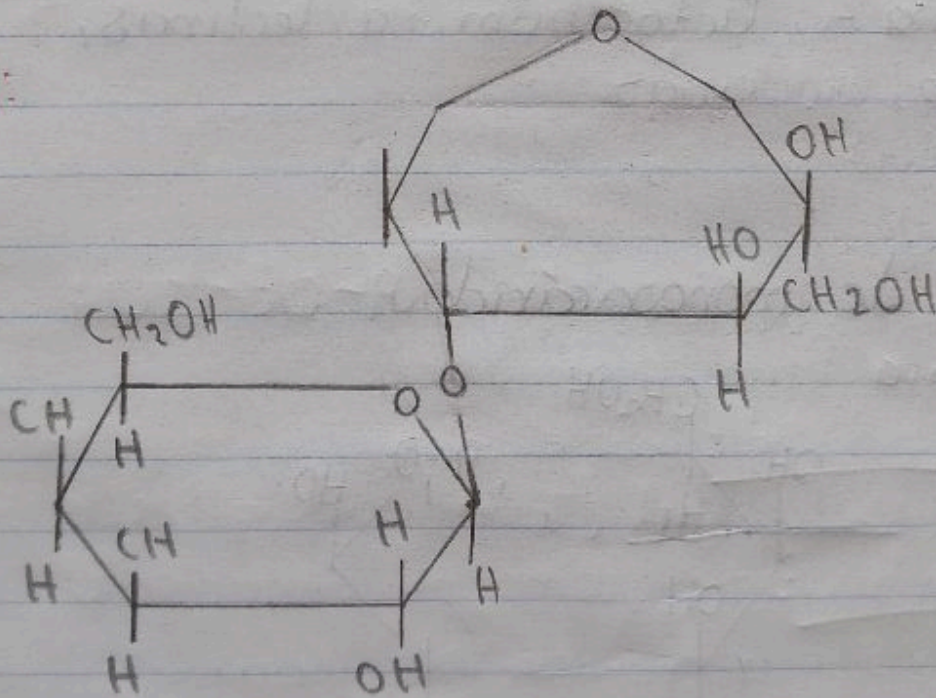 O
OH
H
HO
CH₂OH
CH₂OH
O
H
O
CH
H
H
CH
H
H
H
OH